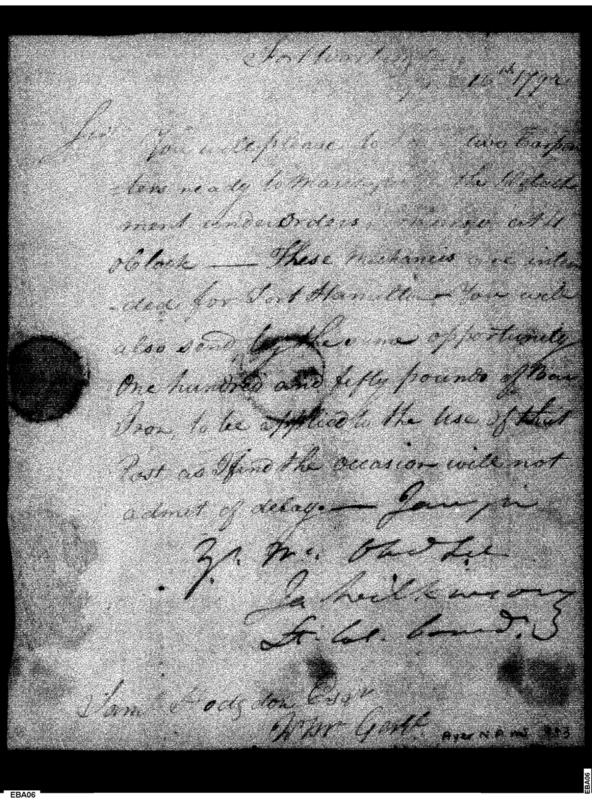 Fort Washington
16th 1792
Sir
You will please to two Carpen
-ters ready to March the Detach
ment under orders, at 11
oClock — These Mechanics are inten
-ded for Fort Hamilton — You will
also send by the same opportunity
One hundred and fifty pounds of Bar
Iron, to be applied to the Use of that
Post as I find the occasion will not
admit of delay —
Yr. Mo. Obed Sr
Ja Wilkinson
Lt. Col. Comd.
Saml Hodgdon Esqr
Qr Mr Genl.
Ayer N.A. ms
EBA06
EBA06